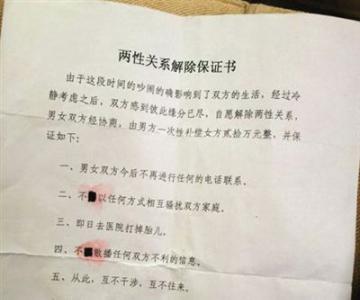 两性关系解除保证书
由于这段时间的吵闹的确影响到了双方的生活，经过冷
静考虑之后，双方感到彼此缘分已尽，自愿解除两性关系，
男女双方经协商，由男方一次性补偿女方贰拾万元整，并保
证如下：
一、男女双方今后不再进行任何的电话联系。
二、不以任何方式相互骚扰双方家庭。
三、即日去医院打掉胎儿。
四、不散播任何双方不利的信息。
五、从此，互不干涉，互不往来。